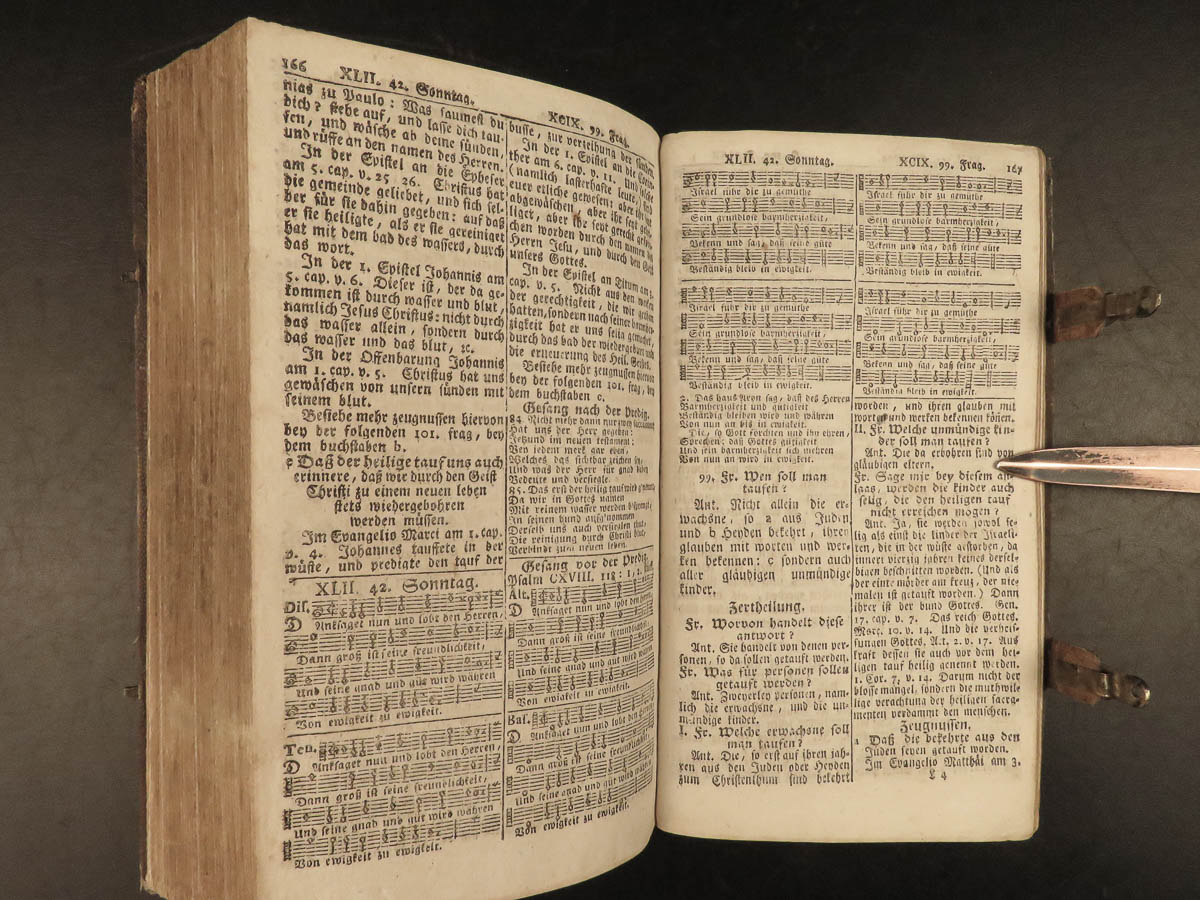 166
XLII. 42. Sonntag.
XCIX. 99. Frag.
nias zu Paulo: Was saumest du
dich? stehe auf, und lasse dich tau-
fen, und wäsche ab deine sünden,
und rüffe an den namen des Herren.
In der Epistel an die Epheser
am 5. cap. v. 25 26. Christus hat
die gemeinde geliebet, und sich sel-
ber für sie dahin gegeben: auf daß
er sie heiligte, als er sie gereiniget
hat mit dem bad des wassers, durch
das wort.
In der 1. Epistel Johannis am
5. cap. v. 6. Dieser ist, der da ge-
kommen ist durch wasser und blut,
namlich Jesus Christus: nicht durch
das wasser allein, sondern durch
das wasser und das blut, ꝛc.
In der Offenbarung Johannis
am 1. cap. v. 5. Christus hat uns
gewäschen von unsern sünden mit
seinem blut.
Besiehe mehr zeugnussen hiervon
bey der folgenden 101. frag, bey
dem buchstaben b.
Daß der heilige tauf uns auch
erinnere, daß wir durch den Geist
Christi zu einem neuen leben
stets wiedergebohren
werden müssen.
Im Evangelio Marci am 1. cap.
v. 4. Johannes tauffete in der
wüste, und predigte den tauf der
busse, zur verzeihung der sünden.
In der 1. Epistel an die Corin-
ther am 6. cap. v. 11. Und solche
(namlich lasterhafte leute,) sind
euer etliche gewesen: aber ihr seyt
abgewäschen, aber ihr seyt gehei-
liget, aber ihr seyt gerecht gespro-
chen worden durch den namen des
Herren Jesu, und durch den Geist
unsers Gottes.
In der Epistel an Titum am 3.
cap. v. 5. Nicht aus den werken
der gerechtigkeit, die wir gethan
hatten, sondern nach seiner barmher-
zigkeit hat er uns selig gemachet,
durch das bad der wiedergeburt und
die erneuerung des Heil. Geistes.
Besiehe mehr zeugnussen hiervon
bey der folgenden 101. frag, bey
dem buchstaben c.
Gesang nach der Predig.
84. Nicht mehr dann nur zwey sacrament
Hat uns der Herr gegeben:
Jetzund im neuen testament:
Von jedem merk gar eben,
Welches das sichtbar zeichen sey,
Und was der Herr für gnad dabey
Bedeute und versiegle.
85. Das erst der heilig tauf wird genennt
Da wir in Gottes namen
Mit reinem wasser werden besprengt,
In seinen bund aufgenommen
Derselb uns auch versichren thut,
Die reinigung durch Christi blut,
Verbindt zum neuen leben.
XLII. 42. Sonntag.
Dis.
DAnksaget nun und lobt den Herren,
Dann groß ist seine freundlichkeit,
Und seine gnad und gut wird währen
Von ewigkeit zu ewigkeit.
Ten.
DAnksaget nun und lobt den Herren,
Dann groß ist seine freundlichkeit,
Und seine gnad und gut wird währen
Von ewigkeit zu ewigkeit.
Gesang vor der Predig.
Psalm CXVIII. 118: 1, 2.
Alt.
DAnksaget nun und lobt den Herren,
Dann groß ist seine freundlichkeit,
Und seine gnad und gut wird währen
Von ewigkeit zu ewigkeit.
Bas.
DAnksaget nun und lobt den Herren,
Dann groß ist seine freundlichkeit,
Und seine gnad und gut wird währen
Von ewigkeit zu ewigkeit.
XLII. 42. Sonntag.
XCIX. 99. Frag.
167
Israel führ dir zu gemüthe
Sein grundlose barmherzigkeit,
Bekenn und sag, daß seine güte
Beständig bleib in ewigkeit.
Israel führ dir zu gemüthe
Sein grundlose barmherzigkeit,
Bekenn und sag, daß seine güte
Beständig bleib in ewigkeit.
2. Das haus Aron sag, daß des Herren
Barmherzigkeit und gütigkeit
Beständig bleiben wird und währen
Von nun an bis in ewigkeit.
Die, so Gott förchten und ihn ehren,
Sprechen: daß Gottes gütigkeit
Und sein barmherzigkeit sich mehren
Von nun an wird in ewigkeit.
99. Fr. Wen soll man
taufen?
Ant. Nicht allein die er-
wachsne, so a aus Juden
und b Heyden bekehrt, ihren
glauben mit worten und wer-
ken bekennen: c sondern auch
aller gläubigen unmündige
kinder.
Zertheilung.
Fr. Worvon handelt diese
antwort?
Ant. Sie handelt von denen per-
sonen, so da sollen getauft werden.
Fr. Was für personen sollen
getauft werden?
Ant. Zweyerley personen, nam-
lich die erwachsne, und die un-
mündige kinder.
I. Fr. Welche erwachsne soll
man taufen?
Ant. Die, so erst auf ihren jah-
ren aus den Juden oder Heyden
zum Christenthum sind bekehrt
Israel führ dir zu gemüthe
Sein grundlose barmherzigkeit,
Bekenn und sag, daß seine güte
Beständig bleib in ewigkeit.
Israel führ dir zu gemüthe
Sein grundlose barmherzigkeit,
Bekenn und sag, daß seine güte
Beständig bleib in ewigkeit.
worden, und ihren glauben mit
worten und werken bekennen könen.
II. Fr. Welche unmündige kin-
der soll man taufen?
Ant. Die da erbohren sind von
gläubigen eltern.
Fr. Sage mir bey diesem an-
laas, werden die kinder auch
selig, die den heiligen tauf
nicht erreichen mögen?
Ant. Ja, sie werden sowol se-
lig als einst die kinder der Israeli-
ten, die in der wüste gestorben, da
innert vierzig jahren keines dersel-
bigen beschnitten worden. (Und als
der eine mörder am kreuz, der nie-
malen ist getauft worden.) Dann
ihrer ist der bund Gottes. Gen.
17. cap. v. 7. Das reich Gottes.
Marc. 10. v. 14. Und die verheis-
sungen Gottes. A.t. 2. v. 17. Aus
kraft dessen sie auch vor dem hei-
ligen tauf heilig genennt werden.
1. Cor. 7; v. 14. Darum nicht der
blosse mangel, sondern die muthwil-
lige verachtung der heiligen sacra-
menten verdammt den menschen.
Zeugnussen.
Daß die bekehrte aus den
Juden seyen getauft worden.
Im Evangelio Matthäi am 3.
L 4